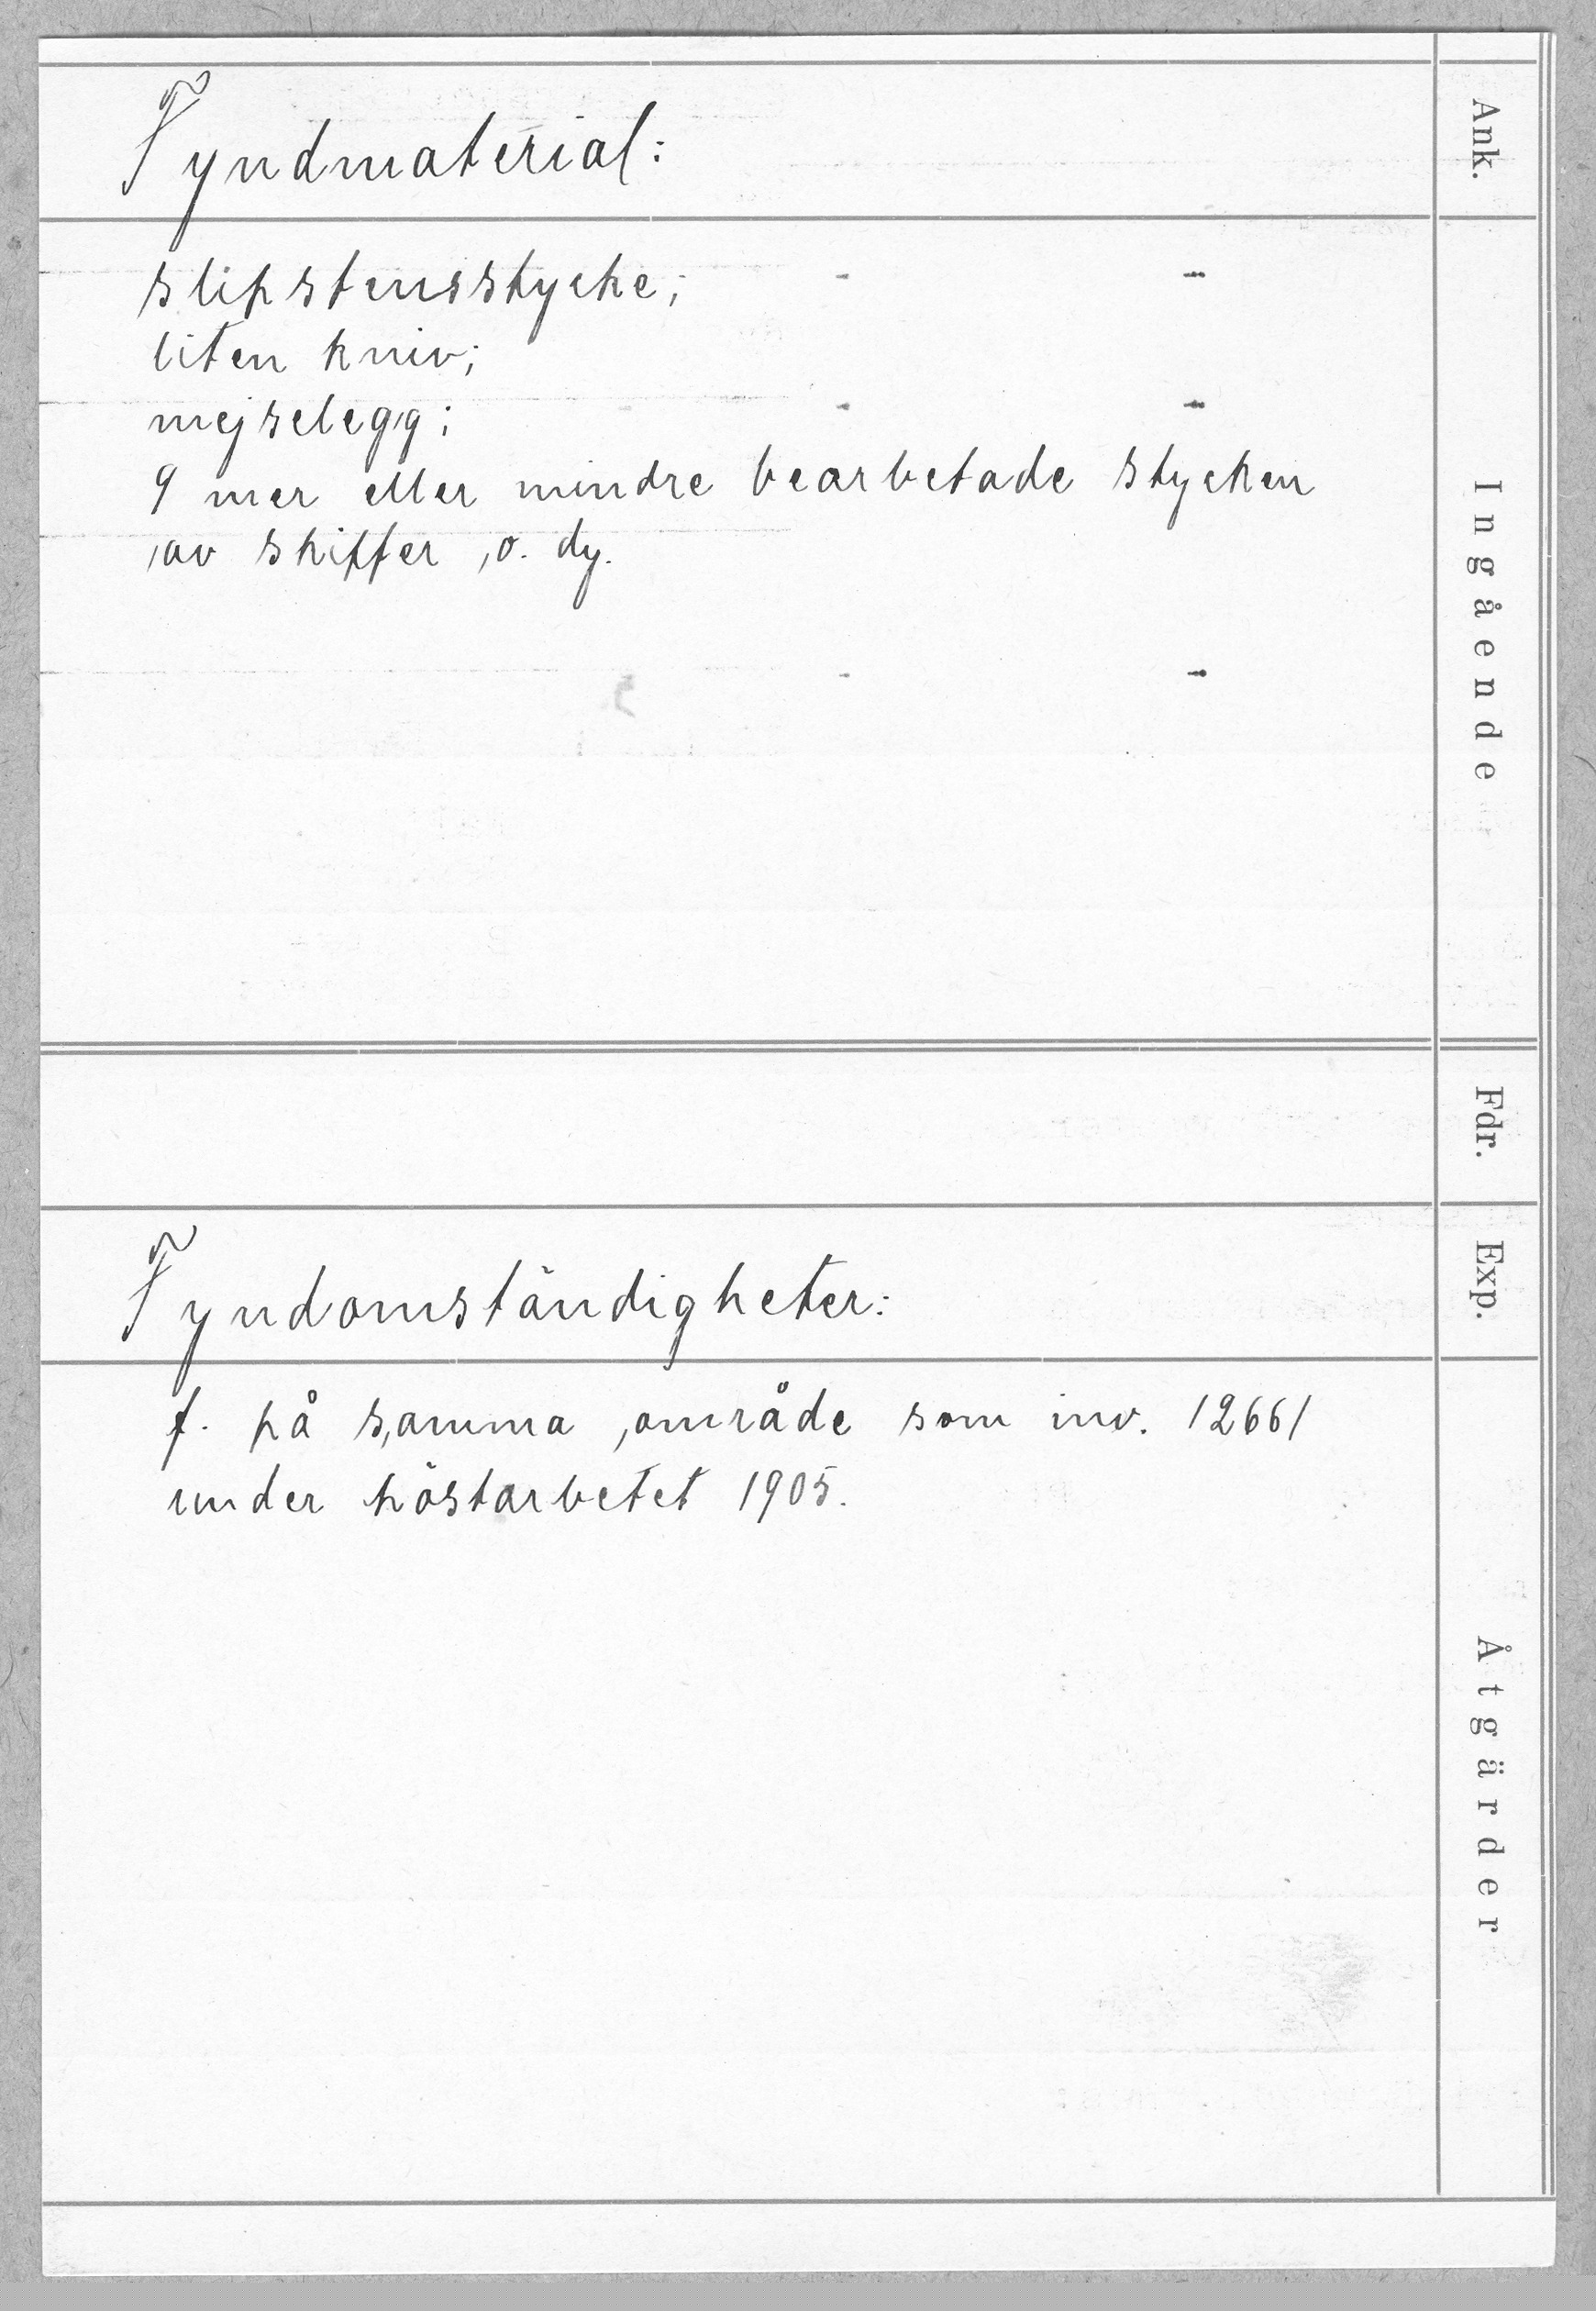 Fyndmaterial:
slipstensstycke;
liten kniv;
mejselegg;
9 mer eller mindre bearbetade stycken
av skiffer o. dy.
Fyndomständigheter:
f. på samma område som inv. 12661
under höstarbetet 1905.
Ank.
Ingående
Fdr.
Exp.
Åtgärder